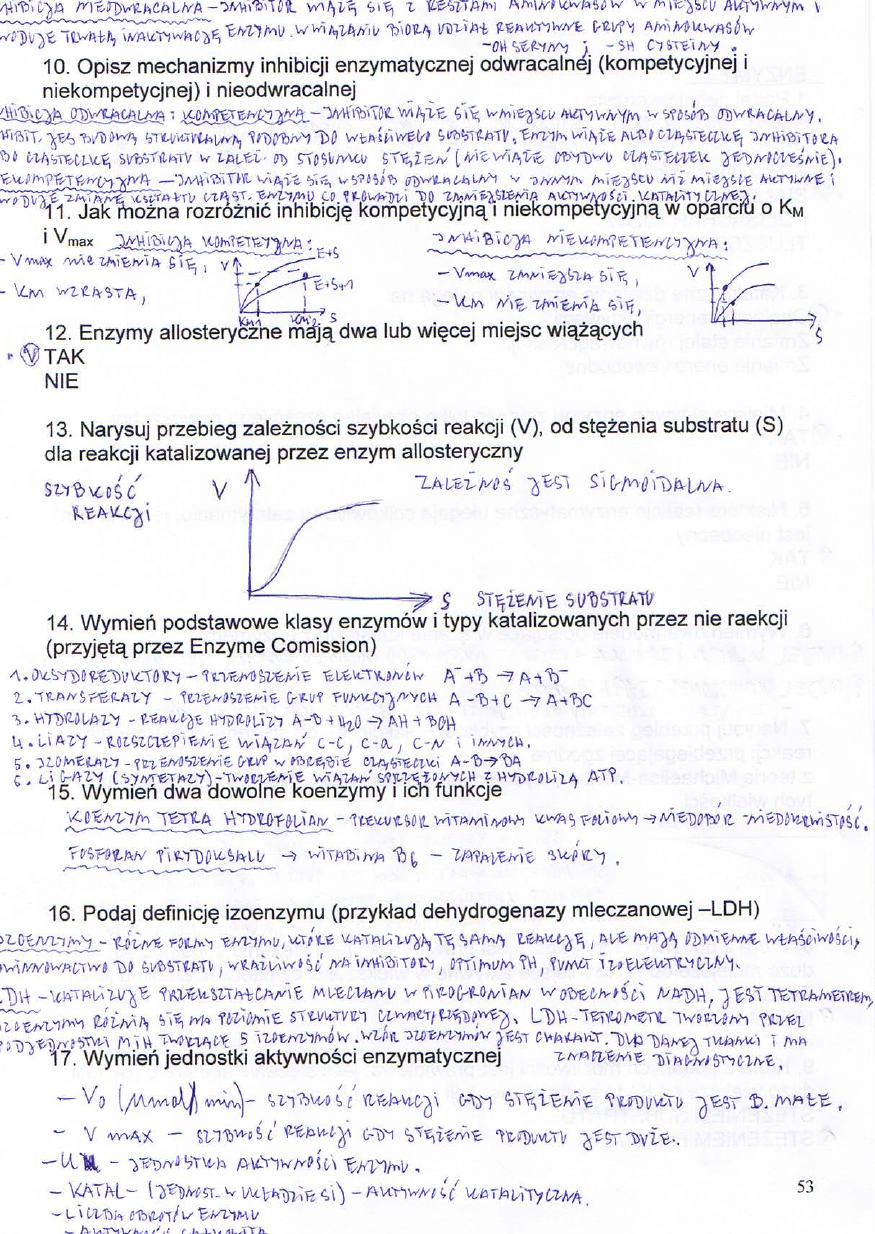 HIBICJA NIEODWRACALNA – INHIBITOR WIĄŻE SIĘ Z RESZTAMI AMINOKWASÓW W MIEJSCU AKTYWNYM I
WODUJE TRWAŁĄ INAKTYWACJĘ ENZYMU. W WIĄZANIU BIORĄ UDZIAŁ REAKTYWNE GRUPY AMINOKWASÓW
-OH SERYNY ; -SH CYSTEINY.
10. Opisz mechanizmy inhibicji enzymatycznej odwracalnej (kompetycyjnej i
niekompetycjnej) i nieodwracalnej
HIBICJA ODWRACALNA: KOMPETENCYJNA – INHIBITOR WIĄŻE SIĘ W MIEJSCU AKTYWNYM W SPOSÓB ODWRACALNY.
HIBIT. JES BUDOWĄ STRUKTURALNĄ PODOBNY DO WŁAŚCIWEGO SUBSTRATU. ENZYM WIĄŻE ALBO CZĄSTECZKĘ INHIBITORA
BO CZĄSTECZKĘ SUBSTRATU W ZALEŻ. OD STOSUNKU STĘŻEŃ (NIE WIĄŻE OBYDWU CZĄSTECZEK JEDNOCZEŚNIE).
EKOMPETENCYJNA – INHIBITOR WIĄŻE SIĘ W SPOSÓB ODWRACALNY W INNYM MIEJSCU NIŻ MIEJSCE AKTYWNE I
WODUJE ZMIANĘ KSZTAŁTU CZĄST. ENZYMU CO PROWADZI DO ZMNIEJSZENIA AKTYWNOŚCI KATALITYCZNEJ.
11. Jak można rozróżnić inhibicję kompetycyjną i niekompetycyjną w oparciu o KM
i Vmax INHIBICJA KOMPETETYJNA: INHIBICJA NIEKOMPETENCYJNA:
- Vmax NIE ZMIENIA SIĘ, V E+S - Vmax ZMNIEJSZA SIĘ, V
E+S+I
- KM WZRASTA, KM1 KM2 S - KM NIE ZMIENIA SIĘ, S
12. Enzymy allosteryczne mają dwa lub więcej miejsc wiążących
V TAK
NIE
13. Narysuj przebieg zależności szybkości reakcji (V), od stężenia substratu (S)
dla reakcji katalizowanej przez enzym allosteryczny
SZYBKOŚĆ V ZALEŻNOŚ JEST SIGMOIDALNA.
REAKCJI
S STĘŻENIE SUBSTRATU
14. Wymień podstawowe klasy enzymów i typy katalizowanych przez nie raekcji
(przyjętą przez Enzyme Comission)
1. OKSYDOREDUKTORY - PRZENOSZENIE ELEKTRONÓW A⁻+B → A+B⁻
2. TRANSFERAZY - PRZENOSZENIE GRUP FUNKCYJNYCH A-B+C → A+BC
3. HYDROLAZY - REAKCJE HYDROLIZY A-B+H₂O → AH+BOH
4. LIAZY - ROZSZCZEPIENIE WIĄZAŃ C-C, C-O, C-N I INNYCH.
5. IZOMERAZY - PRZENOSZENIE GRUP W OBRĘBIE CZĄSTECZKI A-B→BA
6. LIGAZY (SYNTETAZY) - TWORZENIE WIĄZAŃ SPRZĘŻONYCH Z HYDROLIZĄ ATP.
15. Wymień dwa dowolne koenzymy i ich funkcje
KOENZYM TETRA HYDROFOLIAN - PREKURSOR WITAMINOWY KWAS FOLIOWY → NIEDOBÓR - NIEDOKRWISTOŚĆ.
FOSFORAN PIRYDOKSALU → WITABINA B6 – ZAPALENIE SKÓRY.
16. Podaj definicję izoenzymu (przykład dehydrogenazy mleczanowej –LDH)
IZOENZYMY - RÓŻNE FORMY ENZYMU, KTÓRE KATALIZUJĄ TĘ SAMĄ REAKCJĘ, ALE MAJĄ ODMIENNE WŁAŚCIWOŚCI,
OWINNOWACTWO DO SUBSTRATU, WRAŻLIWOŚĆ NA INHIBITORY, OPTIMUM PH, PUNKT IZOELEKTRYCZNY.
LDH - KATALIZUJE PRZEKSZTAŁCANIE MLECZANU W PIROGRONIAN W OBECNOŚCI NADH, JEST TETRAMETREM,
IZOENZYMY RÓŻNIĄ SIĘ NA POZIOMIE STRUKTURY CZWARTORZĘDOWEJ. LDH-TETROMETR TWORZONY PRZEZ
PODJEDNOSTKI M I H TWORZĄCE 5 IZOENZYMÓW. WZÓR IZOENZYMÓW JEST CHARAKT. DLA DANEJ TKANKI I MA
17. Wymień jednostki aktywności enzymatycznej ZNACZENIE DIAGNOSTYCZNE.
- V0 (µmol/min) - SZYBKOŚĆ REAKCJI GDY STĘŻENIE PRODUKTU JEST B. MAŁE.
- V MAX - SZYBKOŚĆ REAKCJI GDY STĘŻENIE PRODUKTU JEST DUŻE.
- U - JEDNOSTKA AKTYWNOŚCI ENZYMU.
- KATAL - (JEDNOST. W UKŁADZIE SI) - AKTYWNOŚĆ KATALITYCZNA.
53
- LICZBA OBROTÓW ENZYMU